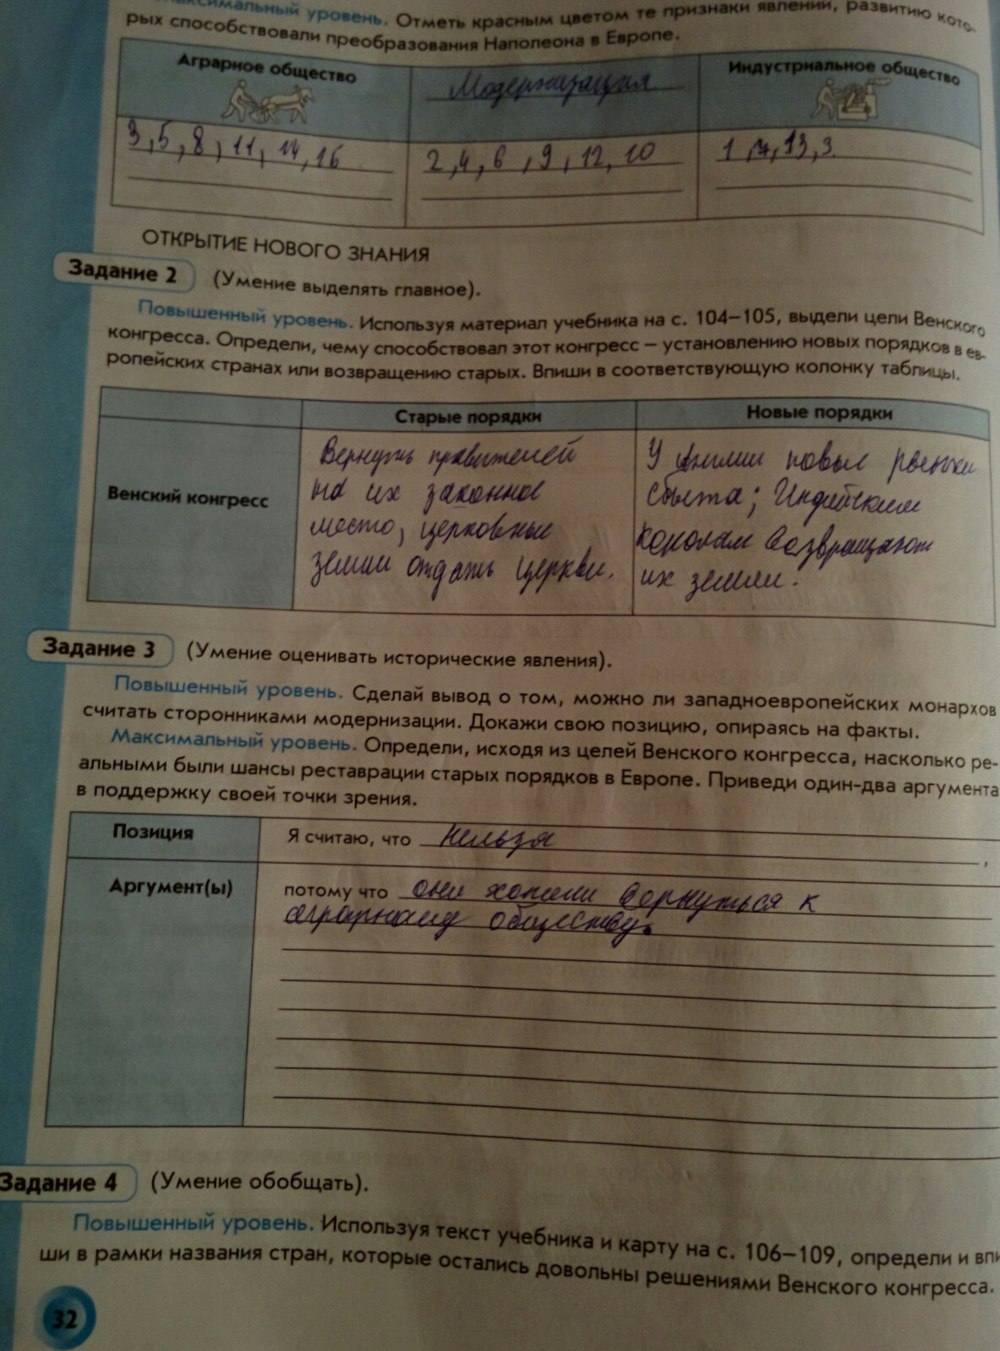 максимальный уровень. Отметь красным цветом те признаки явлений, развитию кото-
рых способствовали преобразования Наполеона в Европе.
Аграрное общество
Модернизация
Индустриальное общество
3, 5, 8, 11, 14, 16
2, 4, 6, 9, 12, 10
1, 7, 13, 3.
ОТКРЫТИЕ НОВОГО ЗНАНИЯ
Задание 2 (Умение выделять главное).
Повышенный уровень. Используя материал учебника на с. 104–105, выдели цели Венского
конгресса. Определи, чему способствовал этот конгресс – установлению новых порядков в ев-
ропейских странах или возвращению старых. Впиши в соответствующую колонку таблицы.
Старые порядки
Новые порядки
Венский конгресс
Вернуть правителей
на их законное
место, церковные
земли отдать церкви.
У Англии новые рынки
сбыта; Индийским
королям возвращают
их земли.
Задание 3 (Умение оценивать исторические явления).
Повышенный уровень. Сделай вывод о том, можно ли западноевропейских монархов
считать сторонниками модернизации. Докажи свою позицию, опираясь на факты.
Максимальный уровень. Определи, исходя из целей Венского конгресса, насколько ре-
альными были шансы реставрации старых порядков в Европе. Приведи один-два аргумента
в поддержку своей точки зрения.
Позиция
Я считаю, что нельзя ,
Аргумент(ы)
потому что они хотели вернуться к
аграрному обществу.
Задание 4 (Умение обобщать).
Повышенный уровень. Используя текст учебника и карту на с. 106–109, определи и впи
ши в рамки названия стран, которые остались довольны решениями Венского конгресса.
32